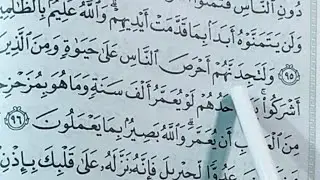 دُونِ النَّاسِ فَتَمَنَّوُا
وَلَن يَتَمَنَّوْهُ أَبَدًا بِمَا قَدَّمَتْ أَيْدِيهِمْ ۗ وَاللَّهُ عَلِيمٌ بِالظَّالِمِ
٩٥ وَلَتَجِدَنَّهُمْ أَحْرَصَ النَّاسِ عَلَىٰ حَيَوٰةٍ وَمِنَ الَّذِينَ
أَشْرَكُوا ۚ حَدُهُمْ لَوْ يُعَمَّرُ أَلْفَ سَنَةٍ وَمَا هُوَ بِمُزَحْزِحِ
مِنَ الْعَ أَن يُعَمَّرَ ۗ وَاللَّهُ بَصِيرٌ بِمَا يَعْمَلُونَ ٩٦
عَدُوًّا لِّجِبْرِيلَ فَإِنَّهُ نَزَّلَهُ عَلَىٰ قَلْبِكَ بِإِذْنِ